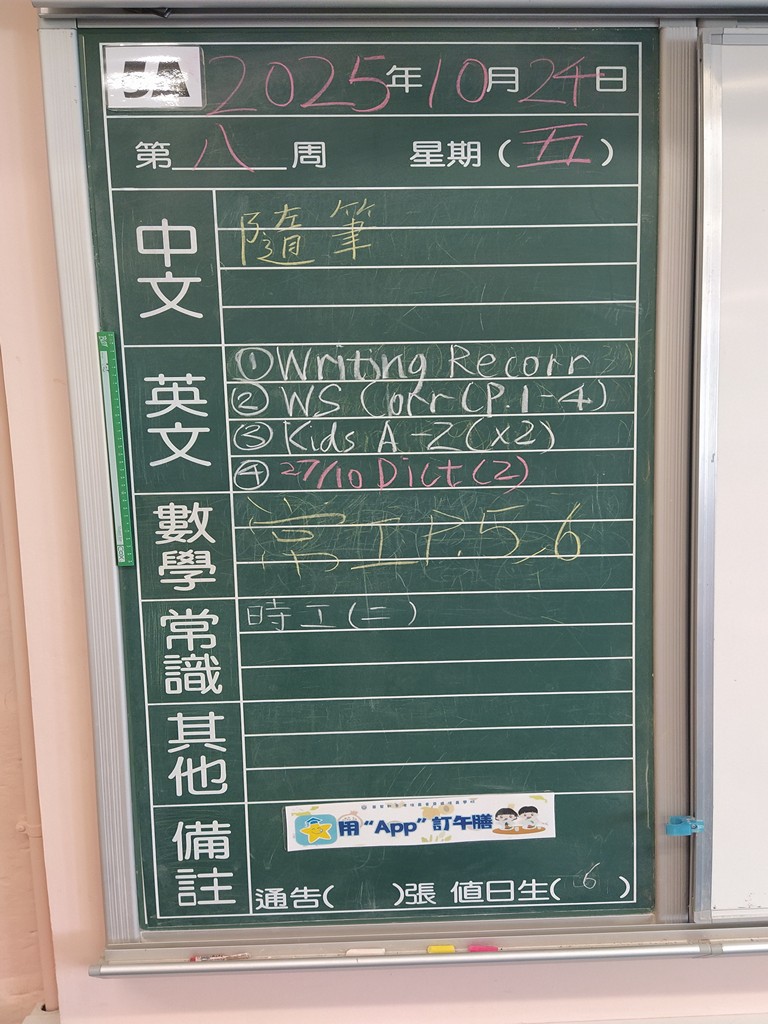 5A 2025年10月24日
第八周 星期(五)
中文 隨筆
英文 ①Writing Recorr
②WS Corr(P.1-4)
③Kids A-Z(x2)
④27/10 Dict(2)
數學 常工P.5,6
常識 時工(二)
其他
備註 用“App”訂午膳
通告( )張 值日生(6)